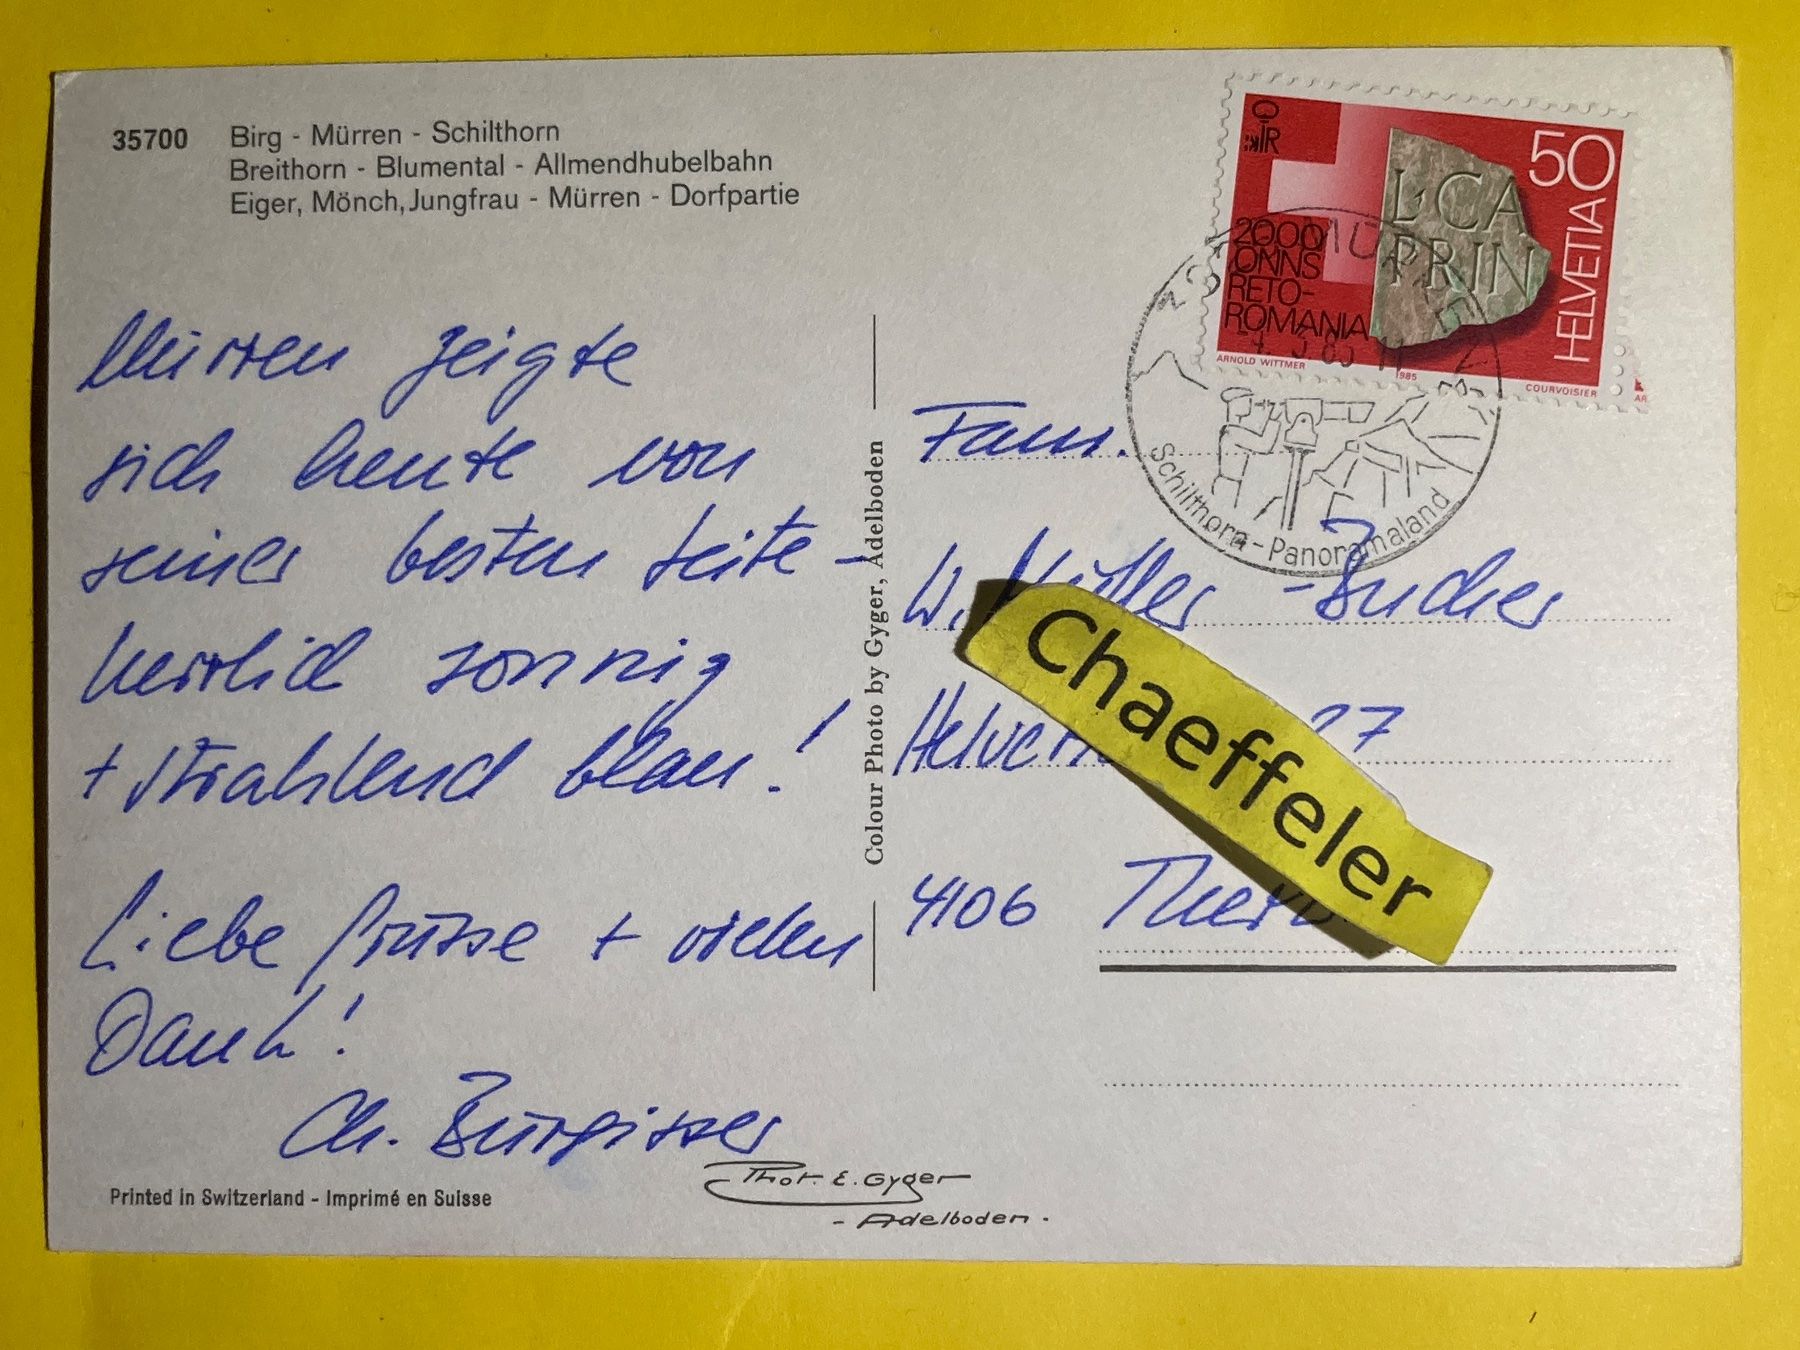 35700 Birg - Mürren - Schilthorn
Breithorn - Blumental - Allmendhubelbahn
Eiger, Mönch, Jungfrau - Mürren - Dorfpartie
Mürren zeigte
sich heute von
seiner besten Seite -
herrlich sonnig
+ strahlend blau!
Liebe Grüsse + vielen
Dank!
Ch. Bürgisser
Printed in Switzerland - Imprimé en Suisse
Phot. E. Gyger
- Adelboden -
Colour Photo by Gyger, Adelboden
50
HELVETIA
L·CA
PRIN
2000
ONNS
RETO-
ROMANIA
ARNOLD WITTMER 1985 COURVOISIER
MÜRREN
Schilthorn-Panoramaland
Fam.
W. Müller-Bucher
27
4106
Chaeffeler